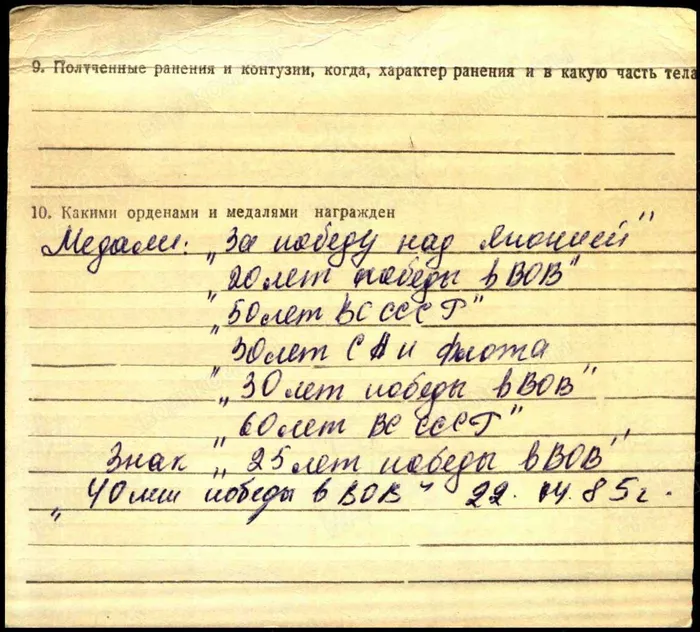 9. Полученные ранения и контузии, когда, характер ранения и в какую часть тела
10. Какими орденами и медалями награжден
Медали: „За победу над Японией"
„20 лет победы в ВОВ"
„50 лет ВС СССР"
„30 лет СА и Флота
„30 лет победы в ВОВ"
„60 лет ВС СССР"
Знак „25 лет победы в ВОВ"
„40 лет победы в ВОВ" 22.04.85г.